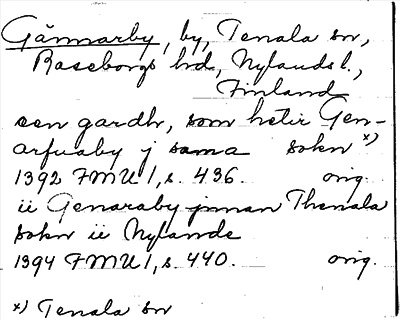 Gännarby, by, Tenala sn,
Raseborgs hd, Nylands l.,
Finland
een gardh, som hetir Gen-
arfuaby j sama sokn *)
1392 FMU 1, s. 436. orig.
ii Genaraby jnnan Thenala
sokn ii Nylande
1394 FMU 1, s. 440. orig.
*) Tenala sn